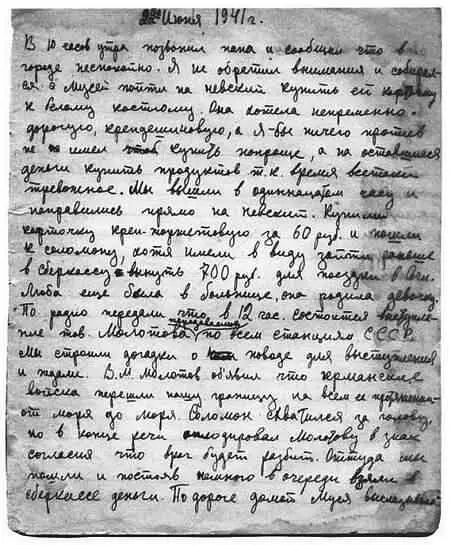 22го Июня 1941 г.
В 10 часов утра позвонил папа и сообщил что в
городе неспокойно. Я не обратил внимания и собирал-
ся с Мусей пойти на невский купить ей кофточку
к белому костюму. Она хотела непременно
дорогую, крепдешиновую, а я-бы ничего против
не имел купить попроще, а на оставшиеся
деньги купить продуктов т.к. время всетаки
тревожное. Мы вышли в одиннадцатом часу и
направились прямо на невский. Купили
кофточку креп-жоржетовую за 60 руб. и пошли
к Соломону, хотя имели в виду зайти раньше
в сберкассу вынуть 700 руб. для поездки в
Люба еще была в больнице, она родила девочку.
По радио передали что в 12 час. состоится выступле-
ние тов. Молотова по всем станциям СССР.
Мы строили догадки о поводе для выступления
и ждали. В.М. Молотов объявил что германские
войска перешли нашу границу на всем ее протяжении
от моря до моря. Соломон схватился за голову,
но в конце речи аплодировал Молотову в знак
согласия что враг будет разбит. Оттуда мы
пошли и постояв немного в очереди взяли в
сберкассе деньги. По дороге домой Муся